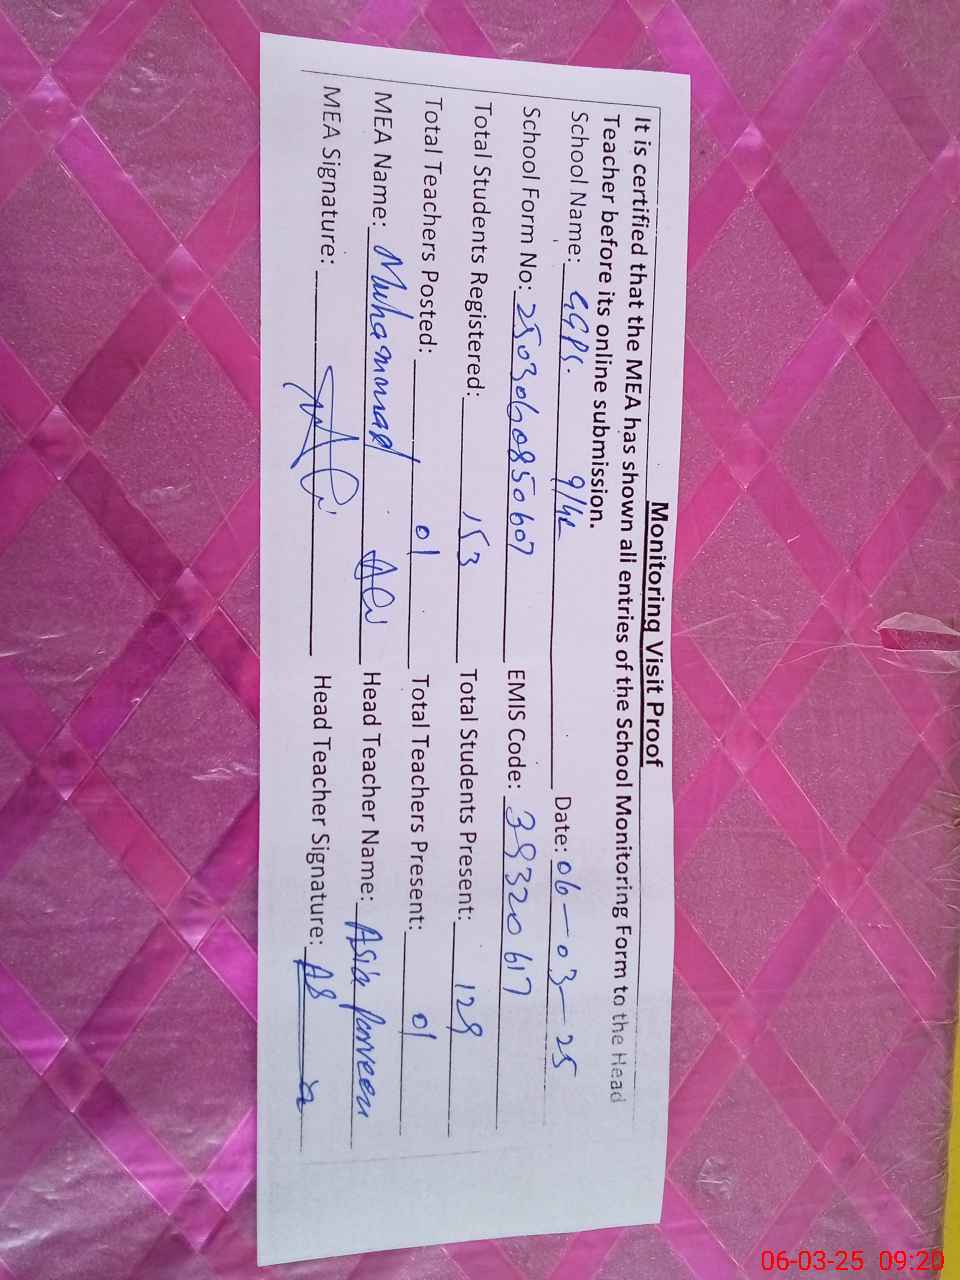 Monitoring Visit Proof
It is certified that the MEA has shown all entries of the School Monitoring Form to the Head
Teacher before its online submission.
School Name: GGPS. 9/4L Date: 06-03-25
School Form No: 2503060850607 EMIS Code: 39320617
Total Students Registered: 153 Total Students Present: 129
Total Teachers Posted: 01 Total Teachers Present: 01
MEA Name: Muhammad Ali Head Teacher Name: Asia Parveen
MEA Signature: Head Teacher Signature:
06-03-25 09:20